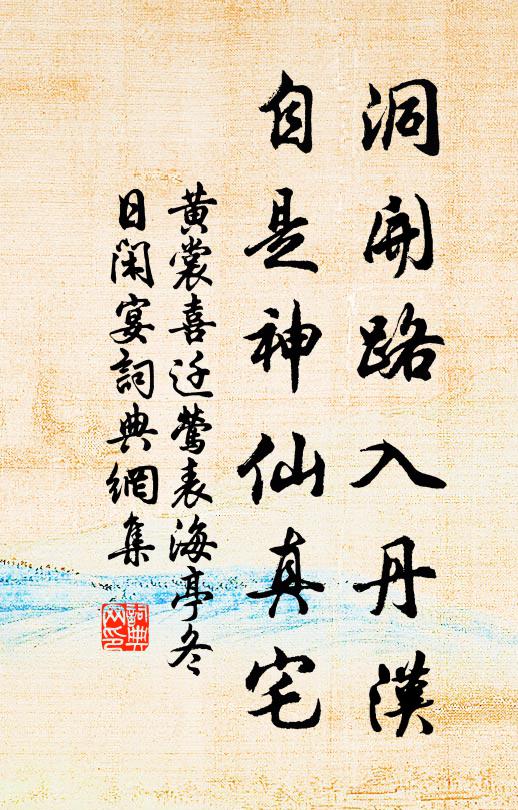 洞開路入丹漢
自是神仙真宅
黃裳喜迁鶯表海亭冬
日閑宴詞典網集
詞典網印